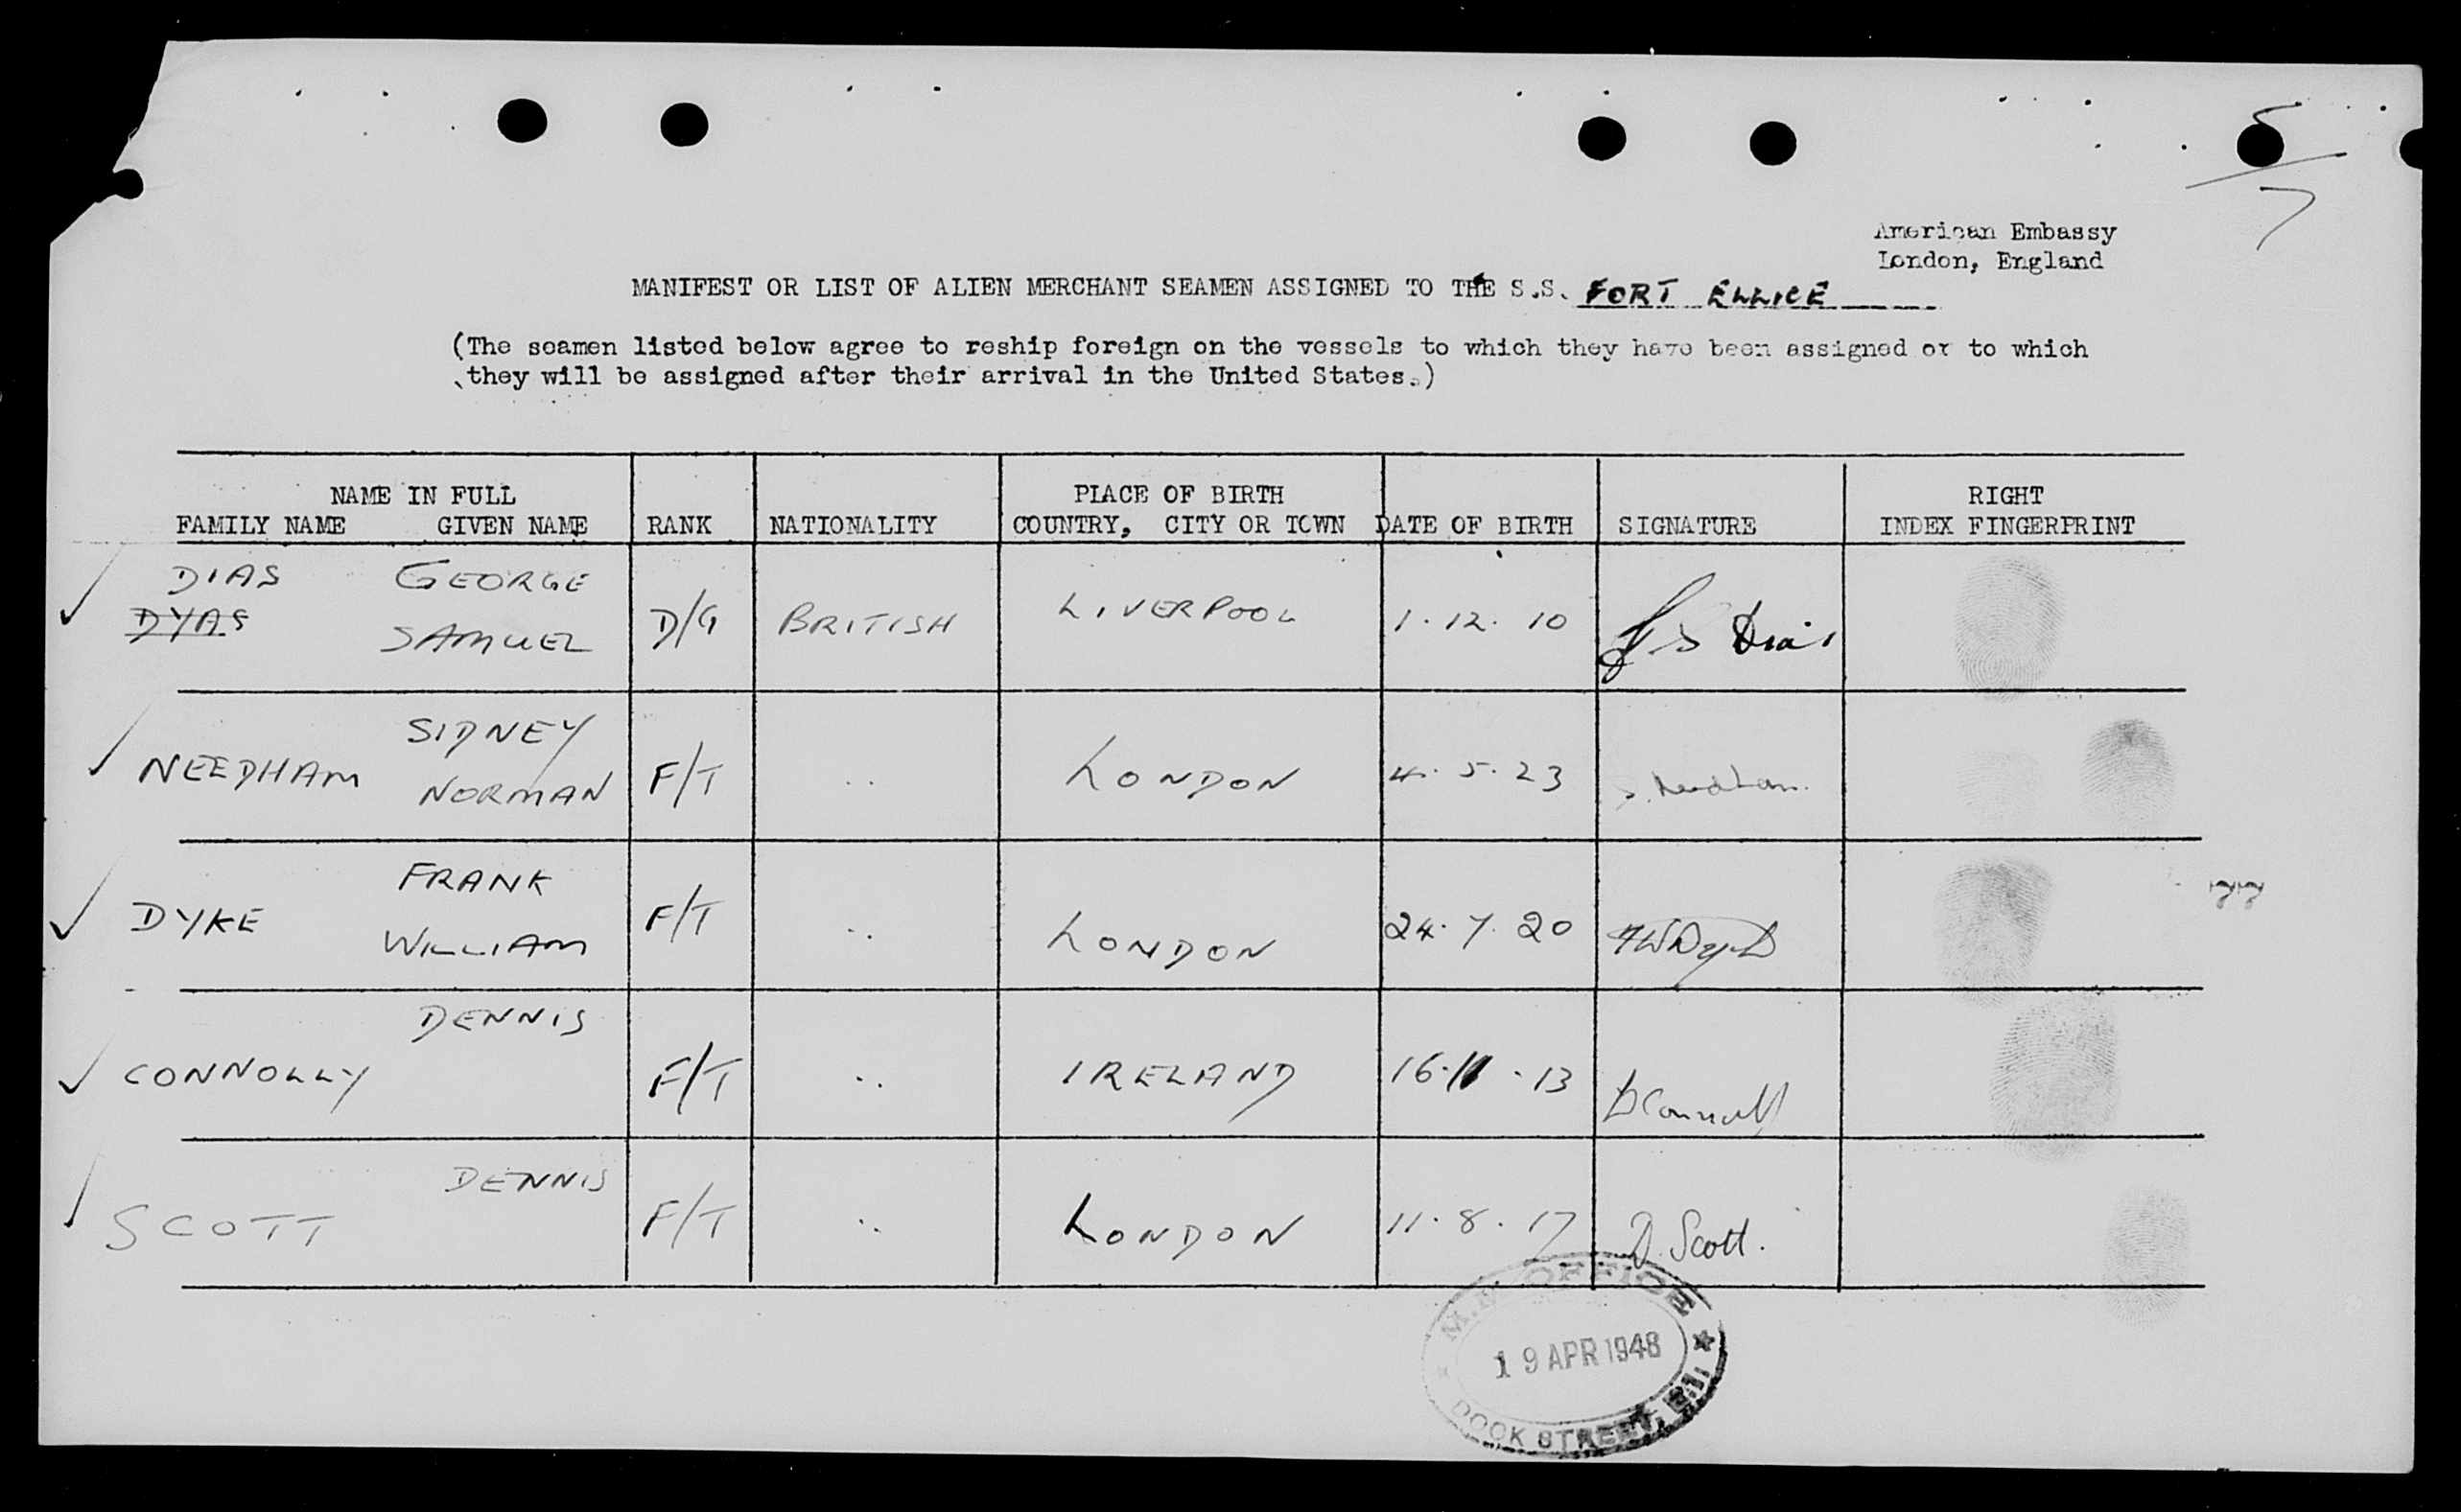 5/7
American Embassy
London, England
MANIFEST OR LIST OF ALIEN MERCHANT SEAMEN ASSIGNED TO THE S.S. FORT ELLICE
(The seamen listed below agree to reship foreign on the vessels to which they have been assigned or to which
they will be assigned after their arrival in the United States.)
NAME IN FULL
FAMILY NAME GIVEN NAME RANK NATIONALITY
PLACE OF BIRTH
COUNTRY, CITY OR TOWN DATE OF BIRTH SIGNATURE
RIGHT
INDEX FINGERPRINT
DIAS GEORGE
DYAS SAMUEL D/G BRITISH LIVERPOOL 1.12.10 G S Dias
SIDNEY
NEEDHAM NORMAN F/T .. LONDON 4.5.23 S. Needham.
FRANK
DYKE WILLIAM F/T .. LONDON 24.7.20 FWDyke
DENNIS
CONNOLLY F/T .. IRELAND 16.11.13 D Connolly
DENNIS
SCOTT F/T .. LONDON 11.8.17 D. Scott.
OFFICE
19 APR 1948
DOCK STREET, E.1.